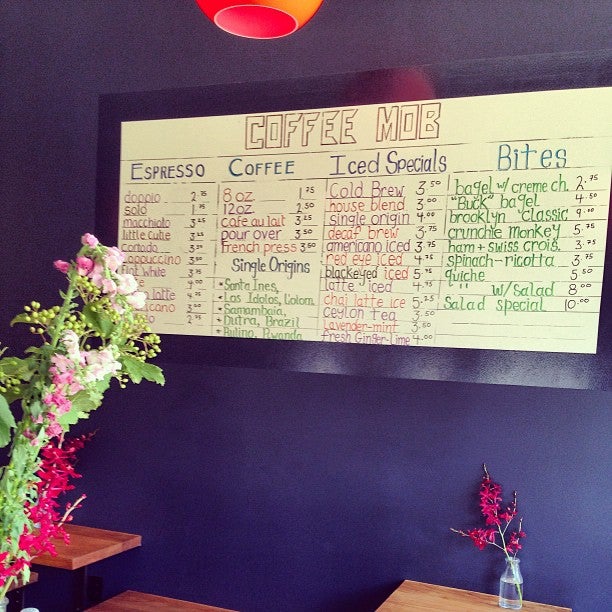 COFFEE MOB
ESPRESSO
doppio 2.75
solo 1.75
macchiato 3.25
little cutie 3.25
cortado 3.50
cappuccino 3.50
flat white 3.75
latte 4.75
2.75
COFFEE
8 oz 1.75
12oz 2.50
cafe au lait 3.25
pour over 3.50
french press 3.50
Single Origins
* Santa Ines,
* Los Idolos, Colom.
* Samambaia,
* Dutra, Brazil
Rwanda
Iced Specials
Cold Brew 3.50
house blend 3.00
single origin 4.00
decaf brew 3.75
americano iced 3.75
red eye iced 4.75
blackeyed iced 5.75
latte iced 4.75
chai latte ice 5.25
ceylon tea 3.50
lavender-mint 3.50
fresh Ginger-Lime 4.00
Bites
bagel w/ creme ch. 2.75
"Buck" bagel 4.50
brooklyn "classic" 9.00
crunchie monkey 5.75
ham + swiss crois. 3.75
spinach-ricotta 3.75
quiche 5.50
" " w/ salad 8.00
Salad special 10.00